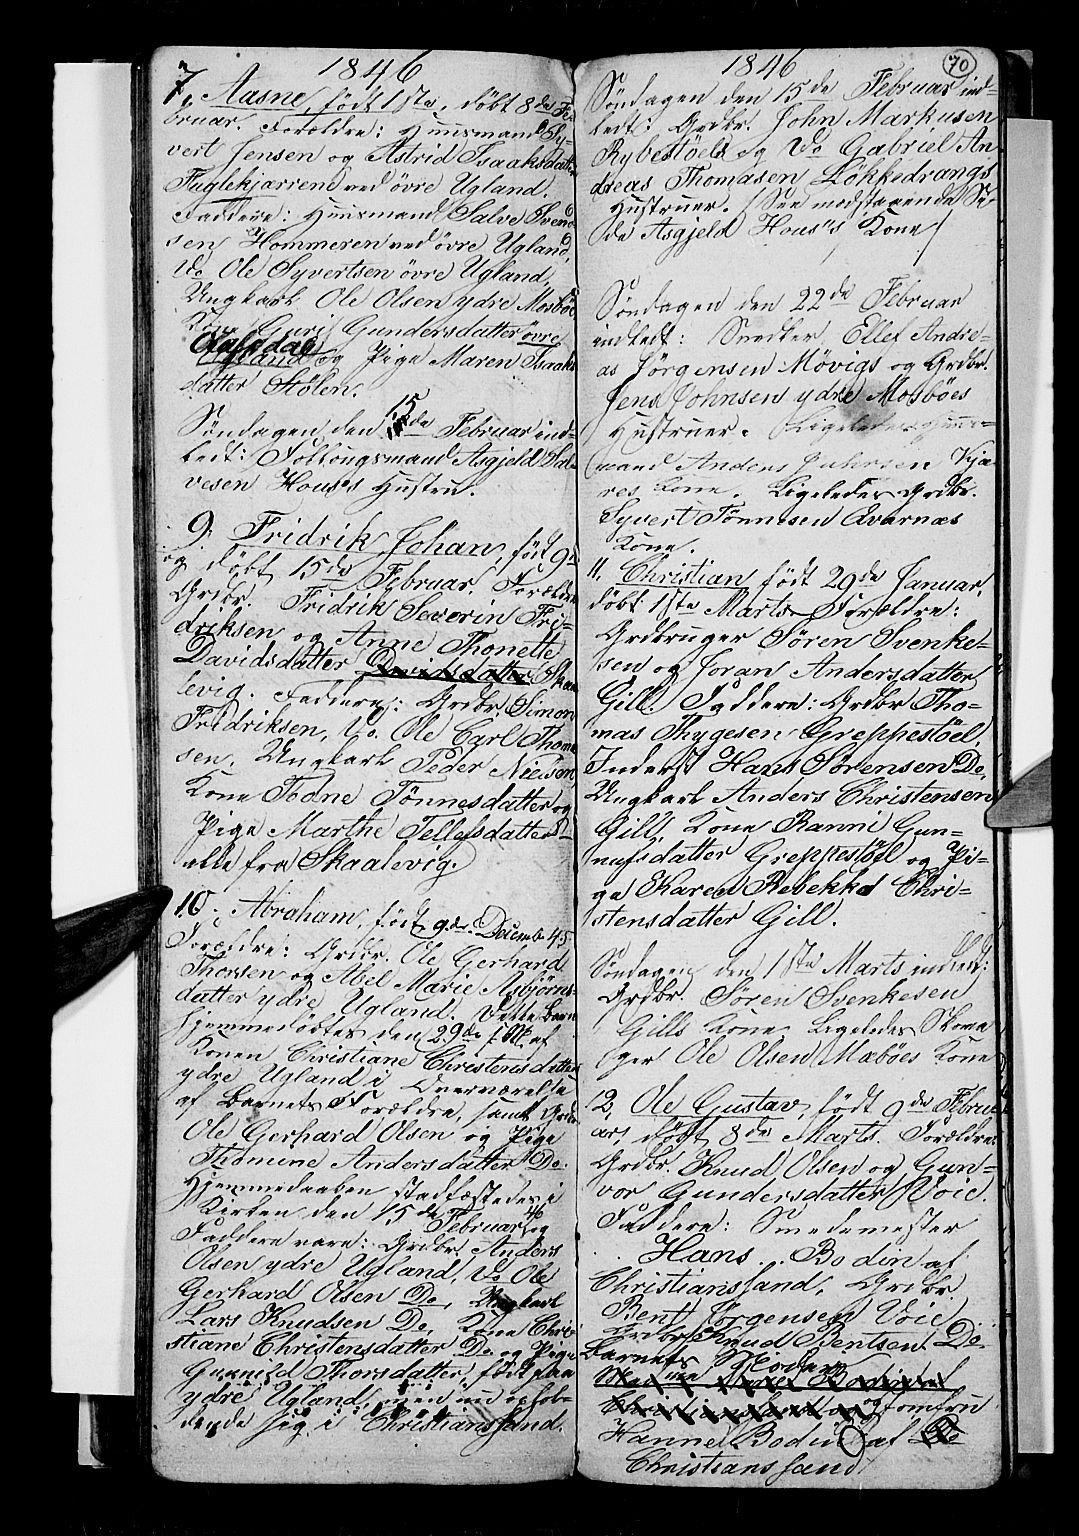 1846
7. Aasne, født 1ste, døbt 8de Fe-
bruar. Forældre: Huusmand Sy-
vert Jensen og Astrid Isaaksdatter
Fuglekjærrene ved øvre Ugland.
Faddere: Huusmand Salve Svend-
sen Hommeren ved øvre Ugland,
Do Ole Syvertsen øvre Ugland,
Ungkarl Ole Olsen ydre Mosbøe
Kone Guri Gundersdatter øvre
Ugland og Pige Maren Isaaks
datter Stølen.
Søndagen den 15de Februar ind-
ledt: Asgjeld Sal-
vesen Hous's Hustru.
9. Fridrik Johan, født 9de
og døbt 15de Februar. Forældre
Grdbr. Fridrik Severin Fri-
driksen og Anne Thonette
Davidsdatter Davidsdatter Skaa-
levig. Faddere: Grdbr. Simon
Fridriksen, Do. Ole Carl Thom-
sen. Ungkarl Peder Nielsen
Kone Todne Tønnesdatter og
Pige Marthe Tellefsdatter
alle fra Skaalevig.
10. Abraham, født 9de Decemb. 45
Forældre: Grdbr. Ole Gerhard
Thorsen og Abel Marie Asbjørns-
datter ydre Ugland. Dette Barn
hjemmedøbtes den 29de s. M. af
Konen Christiane Christensdatter
ydre Ugland i Overværelse
af Barnets Forældre, samt Grdbr
Ole Gerhard Olsen og Pige
Thomine Andersdatter Do.
Hjemmedaaben stadfæstedes i
Kirken den 15de Februar 46 og
Faddere vare: Grdbr Anders
Olsen ydre Ugland, Do Ole
Gerhard Olsen Do, Ungkarl
Lars Knudsen Do, Kone Chri-
stiane Christensdatter Do og Pige
Gunnild Thorsdatter, født paa
ydre Ugland, men nu ophol-
dende sig i Christianssand.
1846
70
Søndagen den 15de Februar ind-
ledt: Grdbr. John Markusen
Rybestøels og Do Gabriel An-
dreas Thomasen Løkkedrangs
Hustruer. (See modstaaende Si-
de Asgjeld Hous's Kone)
Søndagen den 22de Februar
indledt: Snedker Ellef Andre-
as Jørgensen Mövigs og Grdbr.
Jens Johnsen ydre Mosbøes
Hustruer. Ligeledes Huus-
mand Anders Kjæ-
res Kone. Ligeledes Grdbr.
Syvert Tønnesen Avarnæs
Kone.
11. Christian født 29de Januar,
døbt 1ste Marts. Forældre:
Grdbruger Søren Svenke-
sen og Joran Andersdatter
Gill. Faddere: Grdbr Tho-
mas Thygesen Greppestøel
Inderst Hans Sørensen Do,
Ungkarl Anders Christensen
Gill, Kone Ranni Gun-
nufsdatter Greppestøel og Pi-
ge Karen Rebekka Chri-
stensdatter Gill.
Søndagen den 1ste Marts indledt:
Grdbr. Søren Svenkesen
Gills Kone. Ligeledes Skove-
ger Ole Olsen Mæbøes Kone
12. Ole Gustav, født 9de Febru-
ar, døbt 8de Marts. Forældre:
Grdbr. Knud Olsen og Gun-
vor Gundersdatter Voie.
Faddere: Smedemester
Hans Bodin af
Christianssand, Grdbr.
Bent Jørgensen Voie,
Grdbr Knud Bentsen Do.
Barnets Moder
Jomfru
Hanne Bodin af
Christianssand